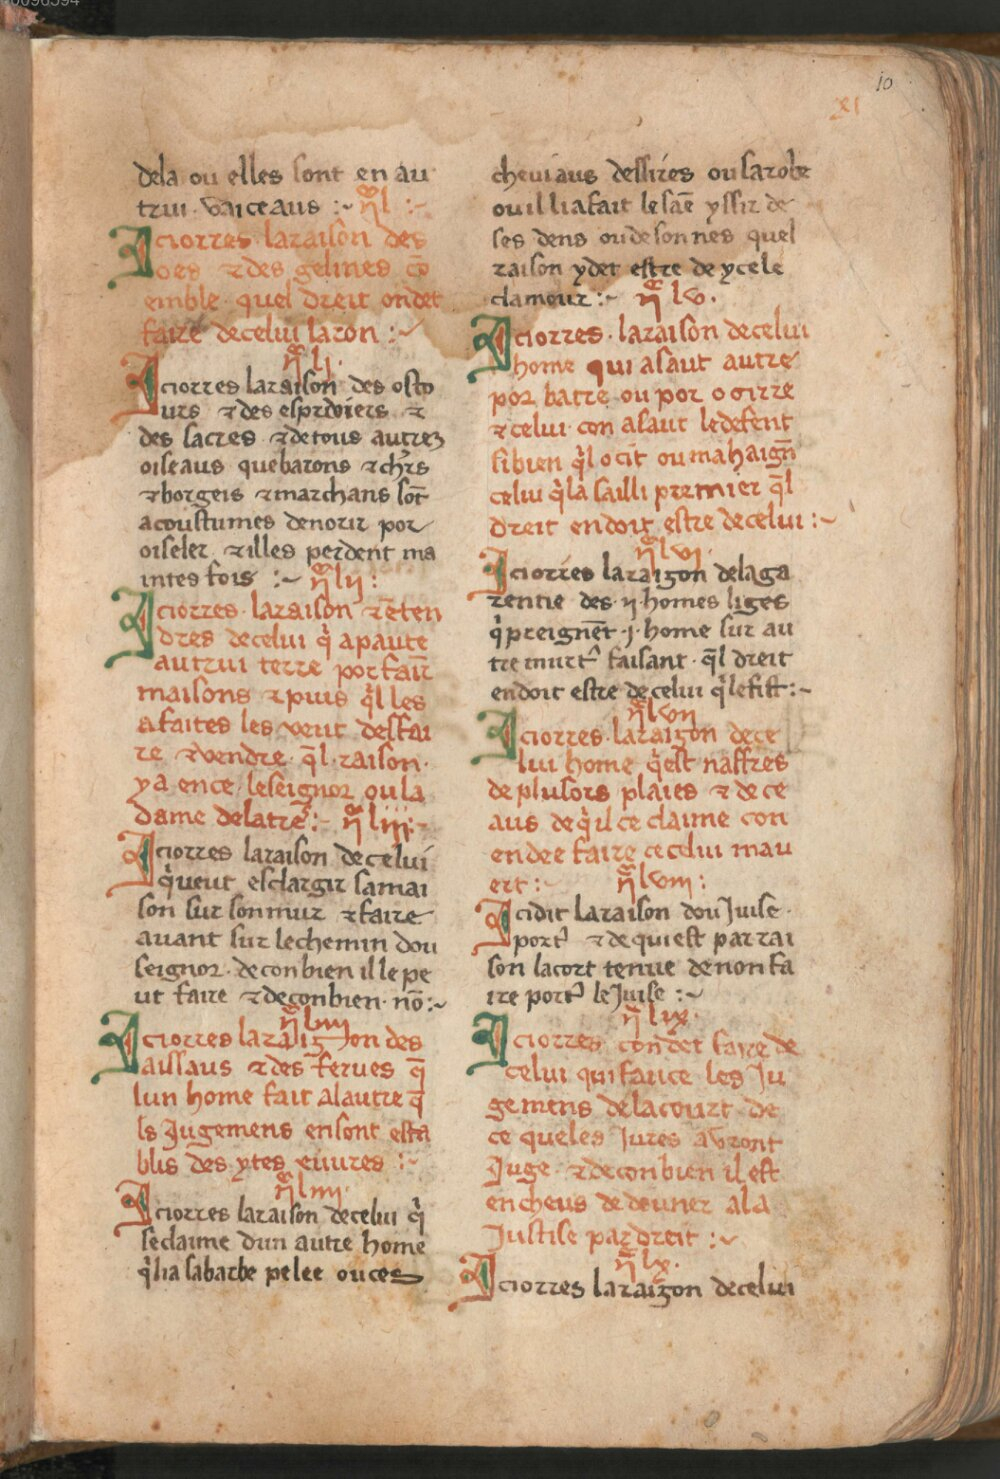 10
XI
dela ou elles sont en au
trui. vaiceaus :~ n̄ l :~
Iciorres. laraison des
oes ⁊ des gelines cō
emble quel dreit on det
faire decelui laron :~
n̄ li.
Iciorres laraison des osto
urs ⁊ des esperviers ⁊
des sacres ⁊ detous autrez
oiseaus que barons ⁊ chr̄s
⁊ borgeis ⁊ marchans sōt
acoustumes denorir por
oiseler. ⁊ illes perdent ma
intes fois :~ n̄ lii :
Iciorres. laraison ⁊ ēten
dres decelui q̇ apaute
autrui terre por fair̄
maisons ⁊ puis q̇l les
afaites les veut desfai
re ⁊ vendre. q̄l. raison.
ya ence. leseignor. ou la
dame delatrē :~ n̄ liii :~
Iciorres laraison de celui
q̇ veut esclargir samai
son sur son mur ⁊ faire
avant sur lechemin dou
seignor. decon bien il le pe
ut faire ⁊ decon bien. nō :~
n̄ liiii
Iciorres laraigon des
aissaus ⁊ des fervues q̄
lun home fait alautre q̄
ls Jugemens en sont esta
blis des ytes euures :~
n̄ liiii.
Iciorres laraison decelui q̇
seclaime dun autre home
q̇lia sabarbe pelee ou ces
cheuiaus dessires ou sarobe
ou il liafait le sāc yssir de
ses dens ou de son nes quel
raison ydet estre de ycele
clamour :~ n̄ lv.
Iciorres. laraison decelui
home qui asaut autre
por batre ou por ocirre
⁊ celui. con asaut le defent
si bien q̇l ocit ou mahaign̄
celui q̇la sailli premier q̄l
dreit en doit estre decelui :~
n̄ lvi.
Iciorres laraigon delaga
rentie des. ii. homes liges
q̇ preignēt. i. home sur au
tre murtʳ faisant. q̄l dreit
endoit estre decelui q̇lefist :~
n̄ lvii
Iciorres. laraigon dece
lui home q̄est naffres
de plusors plaies ⁊ de ce
aus de q̇ il ce claime con
en dee faire ce celui mau
ert :~ n̄ lviii :
Icidit laraison dou Juise.
portʳ ⁊ de qui est par rai
son lacort tenue de non fa
ire portʳ le Juise :~
n̄ lix.
Iciorres con det faire de
celui qui fauce les Ju
gemens delacourt de
ce queles Jures avront
Juge. ⁊ decon bien il est
encheus de deuner ala
Justise par dreit :~
n̄ lx.
Iciorres laraizon decelui